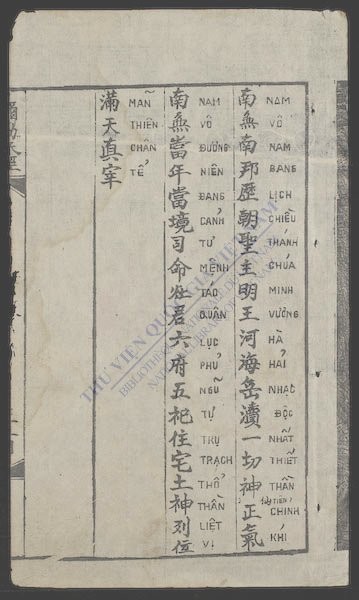 南無南邦歷朝聖主明王河海岳瀆一切神正氣
NAM VÔ NAM BANG LỊCH CHIỀU THÁNH CHÚA MINH VƯƠNG HÀ HẢI NHẠC ĐỘC NHẤT THIẾT THẦN CHINH KHÍ
南無當年當境司命灶君六府五祀住宅土神列位
NAM VÔ ĐƯƠNG NIÊN ĐANG CẢNH TƯ MỆNH TÁO QUÂN LỤC PHỦ NGŨ TỰ TRỤ TRẠCH THỔ THẦN LIỆT VỊ
滿天真宰
MÃN THIÊN CHÂN TỂ
THƯ VIỆN QUỐC GIA VIỆT NAM